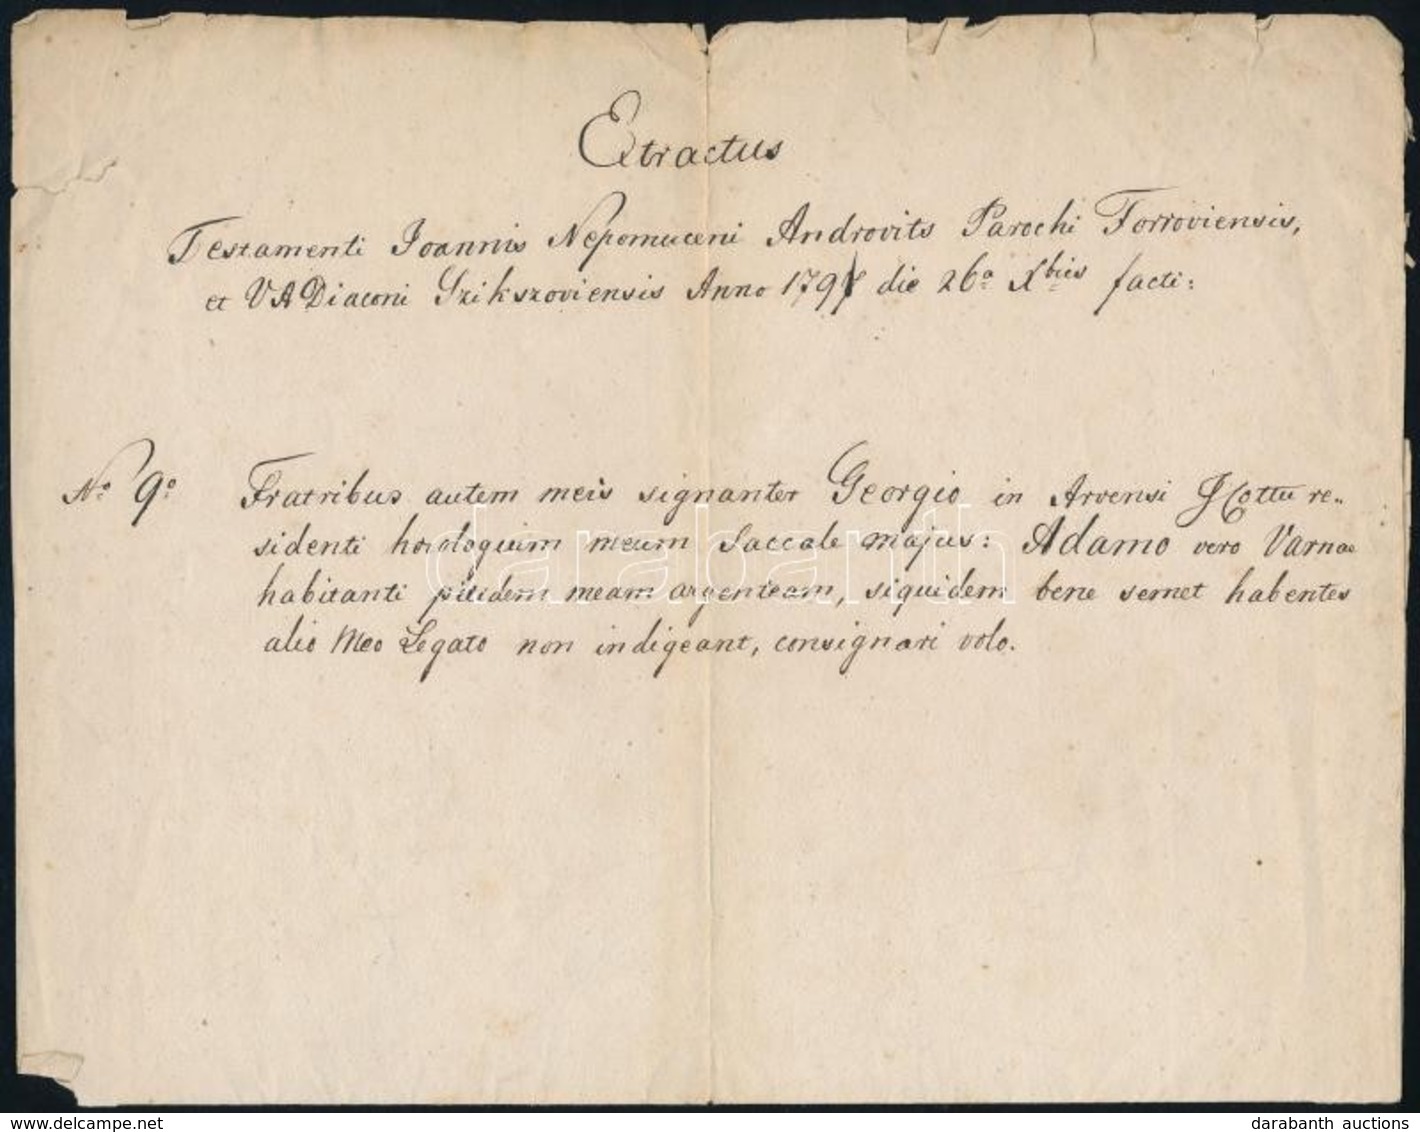 Extractus
Testamenti Joannis Nepomuceni Androvits Parochi Forroviensis,
et VADiaconi Szikszoviensis Anno 1797 die 26ª Xbris facti:
Nº 9º Fratribus autem meis signanter Georgio in Arvensi Cottu re=
sidenti horologium meum Saccale majus: Adamo vero Varnae
habitanti meam argenteam, siquidem bene semet habentes
alio Meo Legato non indigeant, consignari volo.
darabanth
darabanth auctions